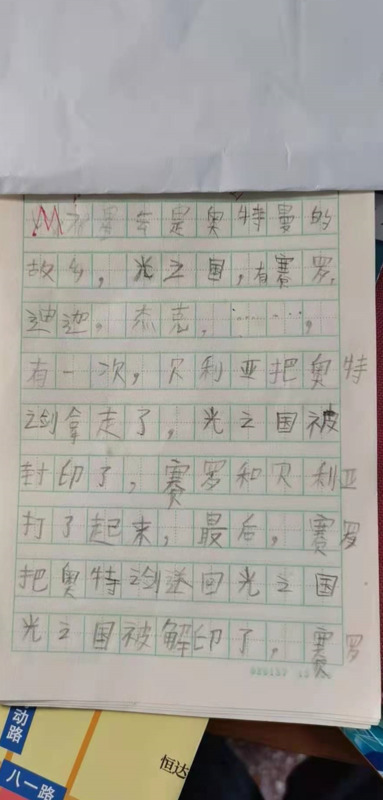 M78星云是奥特曼的
故乡，光之国，有赛罗，
迪迦，杰克，……，
有一次，贝利亚把奥特
之剑拿走了，光之国被
封印了，赛罗和贝利亚
打了起来，最后，赛罗
把奥特之剑送回光之国
光之国被解印了，赛罗
动路
八一路
恒达